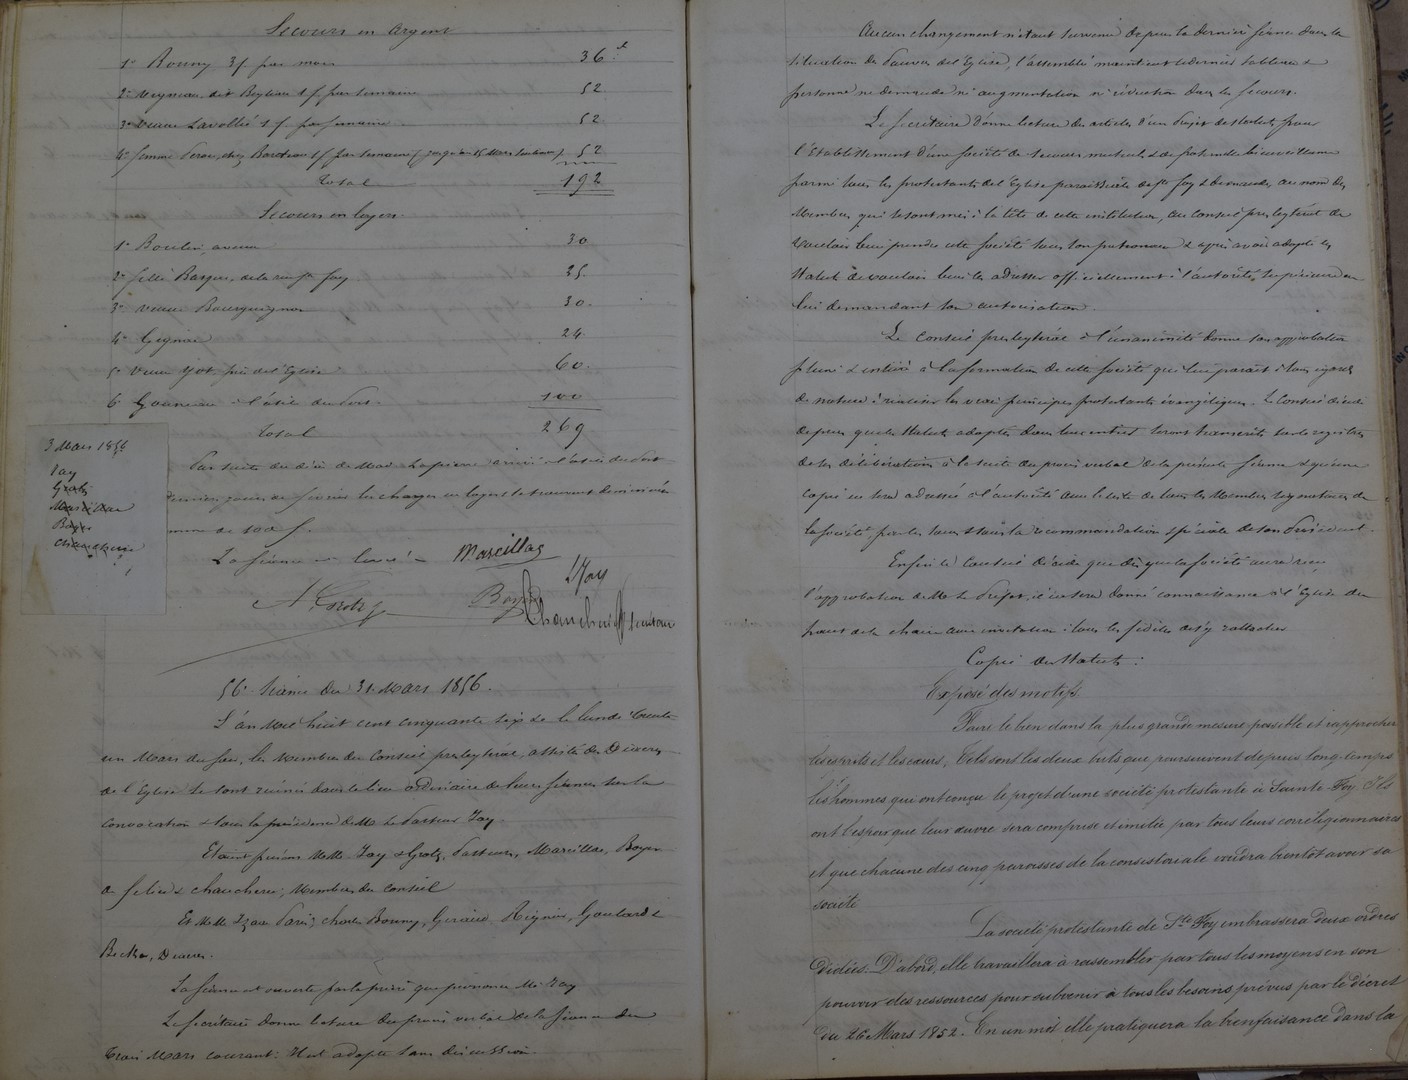 Secours en argent
1° Bonny 3f par mois 36.
2° Veyrieau dit 1f par semaine 52
3° Veuve Lavollié 1f par semaine 52
4° femme chez 1f par semaine 52
Total 192
Secours en loyers.
1° 30
2° de la rue Ste foy 25
3° veuve Bourguignon 30.
4° Gignac 24
5° Veuve près de l'Eglise 60.
6° à l'asile du Port 100
Total 269
Par suite du décès de Mad. Lapierre arrivé à l'asile du Port
derniers jours de février les charges en loyers se trouvent diminuées
somme de 100 f.
La séance est levée.
Marcillac
Jay
A. Grotz
Boyer
secrétaire
3 Mars 1856
Jay
Grotz
Marcillac
Boyer
56e séance du 31 Mars 1856.
L'an Mil huit cent cinquante six & le lundi trente
un Mars du soir, les Membres du Conseil presbytéral, assistés des Diacres
de l'Eglise se sont réunis dans le lieu ordinaire de leurs séances sur la
convocation & sous la présidence de M. le Pasteur Jay.
Etaient présens MM. Jay & Grotz, Pasteurs, Marcillac, Boyer
Membres du Conseil
Et MM. Charles Bonny, Geraud, Rignon, Goulard &
Diacres.
La séance est ouverte par la prière que prononce Mr Jay
Le secrétaire donne lecture du procès verbal de la séance du
trois Mars courant: Il est adopté sans discussion.
Aucun changement n'étant survenu depuis la dernière séance dans la
situation des Pauvres de l'Eglise, l'assemblée maintient le dernier tableau &
personne ne demande ni augmentation ni réduction dans les secours.
Le secrétaire donne lecture des articles d'un Projet de Statuts pour
l'établissement d'une société de secours mutuels & de fraternelle bienveillance
parmi tous les protestants de l'Eglise paroissiale de Ste foy & demande, au nom des
Membres qui se sont mis à la tête de cette institution, au Conseil presbytéral de
vouloir bien prendre cette société sous son patronage & après avoir adopté les
Statuts de vouloir bien les adresser officiellement à l'autorité supérieure en
lui demandant son autorisation.
Le Conseil presbytéral à l'unanimité donne son approbation
pleine & entière à la formation de cette société qui lui parait à tous égards
de nature à réaliser les vrais principes protestants évangéliques. Le Conseil décide
de plus que les Statuts adoptés dans leur entier seront transcrits sur le registre
de ses délibérations à la suite du procès verbal de la présente séance & qu'une
copie en sera adressée à l'autorité avec la liste de tous les Membres signataires de
la société, sous la recommandation spéciale de son Président.
Enfin le Conseil décide que dès que la société aura reçu
l'approbation de M. le Préfet, il en sera donné connaissance à l'Eglise du
haut de la chaire avec invitation à tous les fidèles de s'y rattacher
Copie des Statuts:
Exposé des motifs
Faire le bien dans la plus grande mesure possible et rapprocher
les esprits et les cœurs, Tels sont les deux buts que poursuivent depuis long-temps
les hommes qui ont conçu le projet d'une société protestante à Sainte-Foy. Ils
ont l'espoir que leur œuvre sera comprise et imitée par tous leurs corréligionnaires
et que chacune des cinq paroisses de la consistoriale voudra bientôt avoir sa
société
La société protestante de Ste Foy embrassera deux ordres
d'idées. D'abord, elle travaillera à rassembler par tous les moyens en son
pouvoir des ressources pour subvenir à tous les besoins prévus par le décret
du 26 Mars 1852. En un mot elle pratiquera la bienfaisance dans la